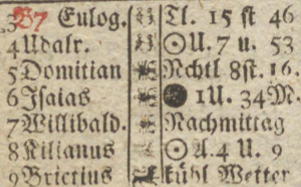 3 B7 Eulog. Tl. 15 st 46
4 Udalr. ☉U. 7 u. 53
5 Domitian Nchtl 8st. 16.
6 Isaias ● 1U. 34M.
7 Willibald. Nachmittag
8 Kilianus ☉A. 4 U. 9
9 Brictius kühl Wetter